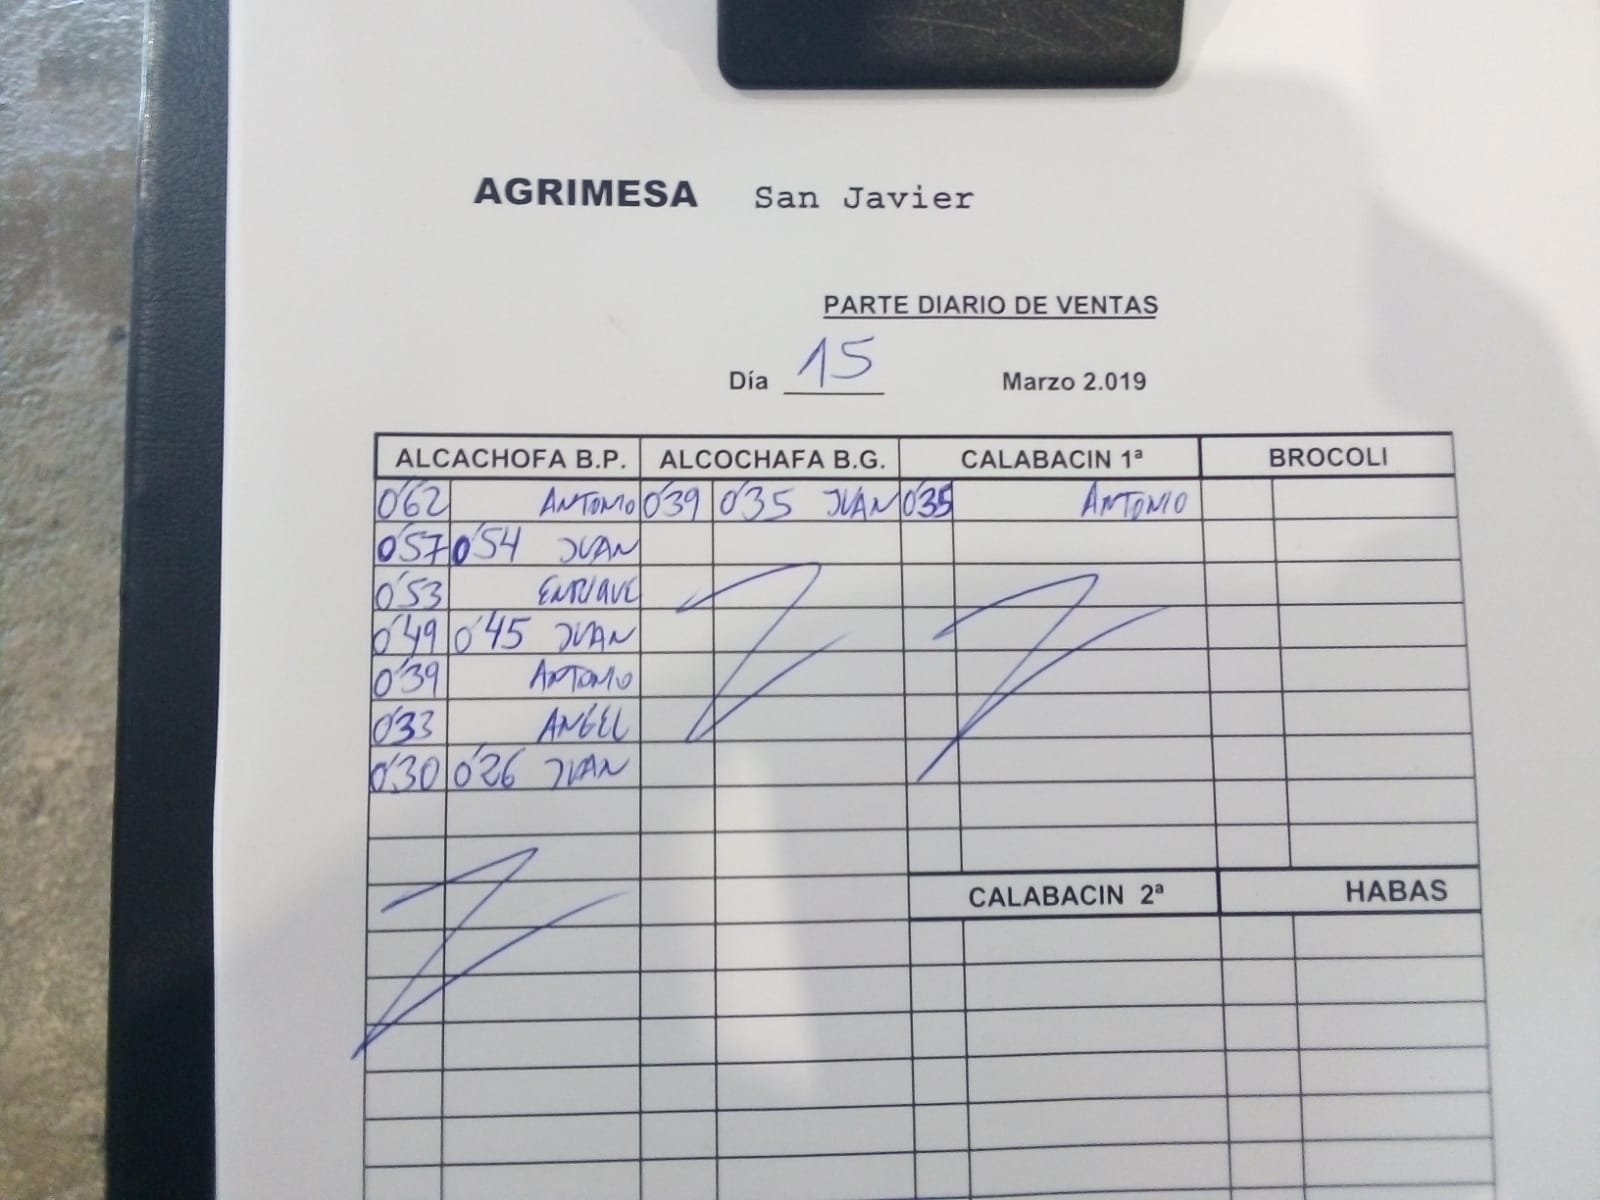 AGRIMESA San Javier
PARTE DIARIO DE VENTAS
Día 15 Marzo 2.019
ALCACHOFA B.P. ALCOCHAFA B.G. CALABACIN 1ª BROCOLI
0'62 ANTONIO 0'39 0'35 JUAN 0'35 ANTONIO
0'57 0'54 JUAN
0'53 ENRIQUE
0'49 0'45 JUAN
0'39 ANTONIO
0'33 ANGEL
0'30 0'26 JUAN
CALABACIN 2ª HABAS